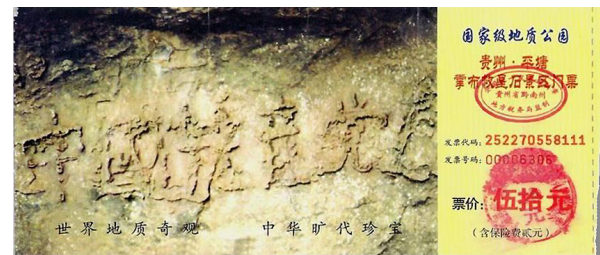 中國共产党
世界地质奇观 中华旷代珍宝
国家级地质公园
贵州·平塘
掌布救星石景区门票
贵州省黔南州
地方税务局监制
发票代码: 252270558111
发票号码: 00006306
票价: 伍拾元
(含保险费贰元)